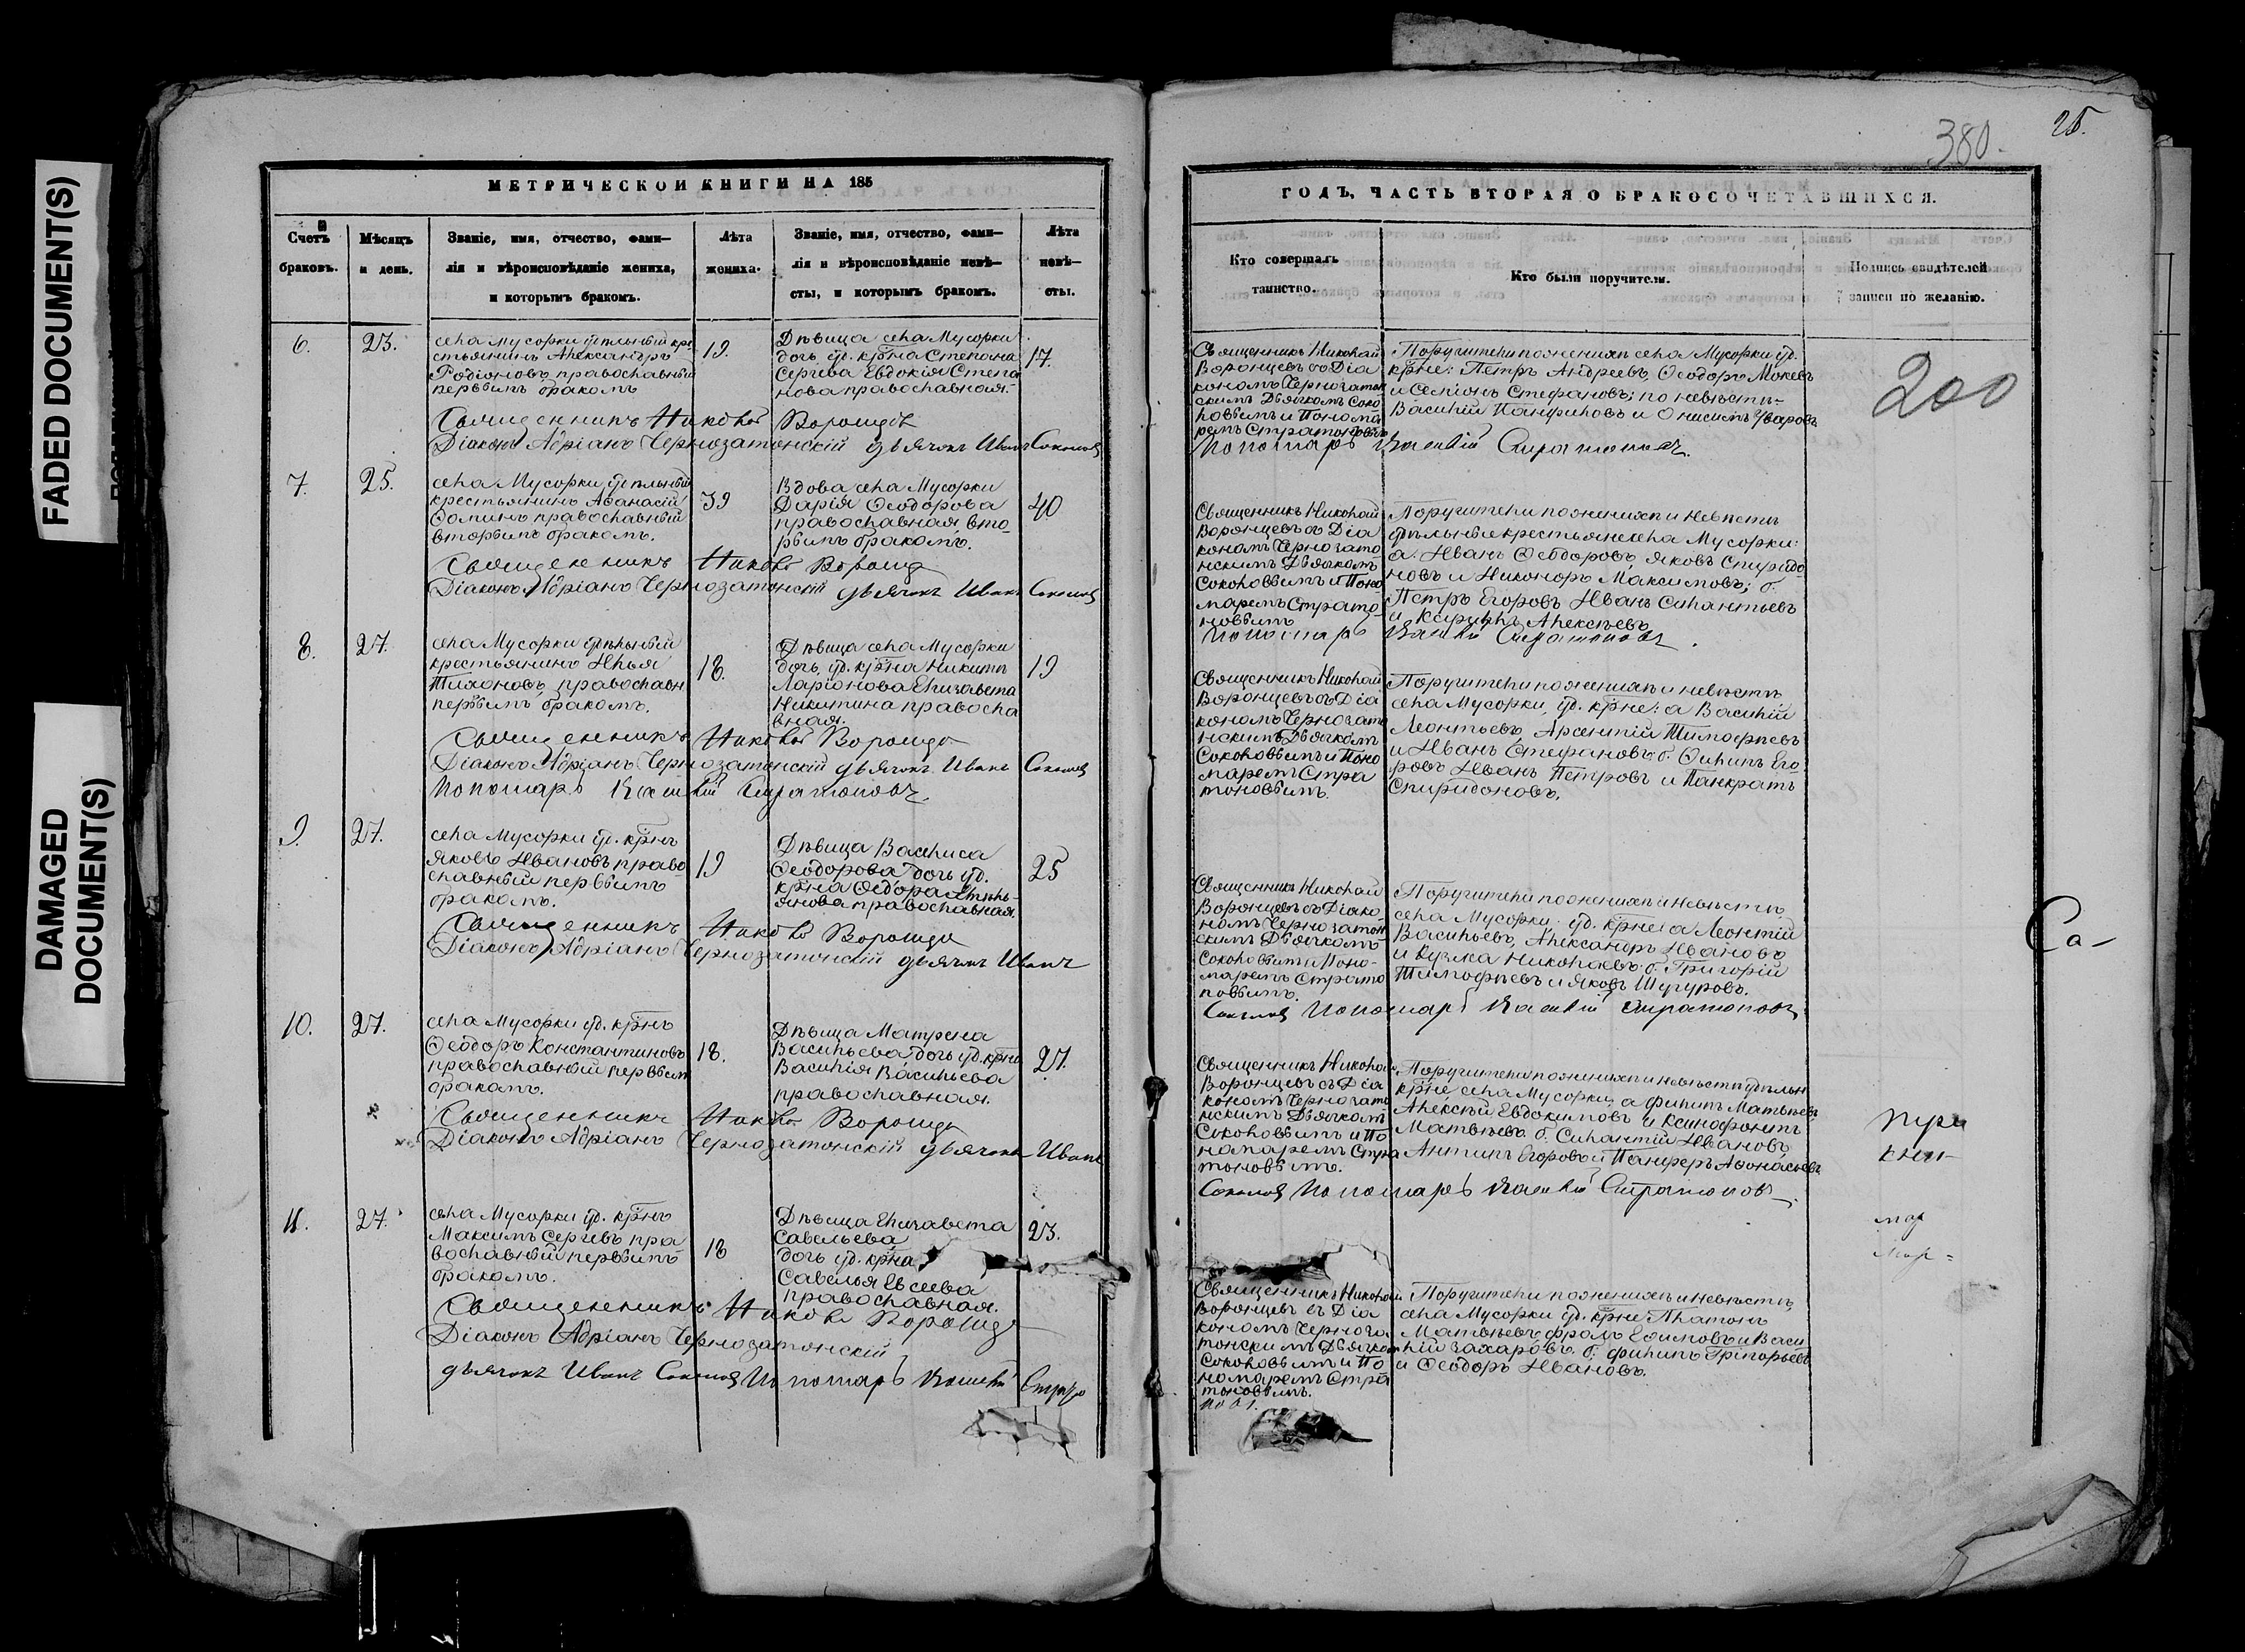 FADED DOCUMENT(S)
DAMAGED
DOCUMENT(S)
380.
25.
МЕТРИЧЕСКОЙ КНИГИ НА 185
Счетъ
браковъ.
Мѣсяцъ
и день.
Званіе, имя, отчество, фами-
лія и вѣроисповѣданіе жениха,
и которымъ бракомъ.
Лѣта
жениха.
Званіе, имя, отчество, фами-
лія и вѣроисповѣданіе невѣ-
сты, и которымъ бракомъ.
Лѣта
невѣ-
сты.
6.
23.
села Мусорки удѣльный кре
стьянинъ Александръ
Родіоновъ православный
первымъ бракомъ
19.
Дѣвица села Мусорки
дочь уд. крна Степана
Сергѣева Евдокія Степа
нова православная.
17.
Священникъ Николай Воронцовъ
Діаконъ Адріанъ Чернозатонскій дьячокъ Иванъ Соколовъ
7.
25.
села Мусорки удѣльный
крестьянинъ Аѳанасій
Ѳоминъ православный
вторымъ бракомъ.
39
Вдова села Мусорки
Дарія Ѳеодорова
православная вто
рымъ бракомъ.
40
Священникъ Николай Воронцо
Діаконъ Адріанъ Чернозатонскій дьячокъ Иванъ Соколовъ
8.
27.
села Мусорки удѣльный
крестьянинъ Илья
Тихоновъ, православн
первымъ бракомъ.
18.
Дѣвица села Мусорки
дочь уд. крна Никиты
Ларіонова Елизавета
Никитина правосла
вная.
19
Священникъ Николай Воронцо
Діаконъ Адріанъ Чернозатонскій дьячокъ Иванъ Соколовъ
Пономарь Василій Стратоновъ.
9.
27.
села Мусорки уд. крнъ
Яковъ Ивановъ право
славный первымъ
бракомъ.
19
Дѣвица Василиса
Ѳеодорова дочь уд.
крна Ѳедора Емель-
янова православная.
25
Священникъ Николай Воронцо
Діаконъ Адріанъ Чернозатонскій дьячокъ Иванъ
10.
27.
села Мусорки уд. крнъ
Ѳеодоръ Константиновъ
православный первым
бракомъ.
18.
Дѣвица Матрена
Васильева дочь уд. крна
Василія Васильева
православная.
21.
Священникъ Николай Воронцо
Діаконъ Адріанъ Чернозатонскій дьячокъ Иванъ
11.
27.
села Мусорки уд. крнъ
Максимъ Сергѣевъ пра
вославный первымъ
бракомъ.
18
Дѣвица Елизавета
Савельева
дочь уд. крна
Савелья Евсеева
православная.
23.
Священникъ Николай Воронцо
Діаконъ Адріанъ Чернозатонскій
дьячокъ Иванъ Соколовъ Пономарь Василій Страто
ГОДЪ, ЧАСТЬ ВТОРАЯ О БРАКОСОЧЕТАВШИХСЯ.
Кто совершалъ
таинство.
Кто были поручители.
Подпись свидѣтелей
записи по желанію.
Священникъ Николай
Воронцевъ съ Діа
кономъ Чернозатон
скимъ Дьячкомъ Соко
ловымъ и Понома
ремъ Стратоновымъ
Поручители по женихѣ села Мусорки уд.
крне: Петръ Андреевъ, Ѳеодоръ Мокѣевъ
и Семіонъ Стефановъ; по невѣсты-
Василій Панфиловъ и Онисимъ Уваровъ
200
Пономарь Василій Стратоновъ.
Священникъ Николай
Воронцевъ съ Діа
кономъ Чернозато
нскимъ Дьячкомъ
Соколовымъ и Поно
маремъ Страто
новымъ
Поручители по женихѣ и невѣсты
удѣльные крестьяне села Мусорки:
а. Иванъ Ѳеодоровъ, Яковъ Спиридо
новъ и Никоноръ Максимовъ; б.
Петръ Егоровъ Иванъ Силантьевъ
и Кирилъ Алексѣевъ
Пономарь Василій Стратоновъ.
Священникъ Николай
Воронцевъ съ Діа
кономъ Чернозато
нскимъ Дьячкомъ
Соколовымъ и Поно
маремъ Стра
тоновымъ.
Поручители по женихѣ и невѣсты
села Мусорки, уд. крне: а Василій
Леонтьевъ, Арсентій Тимофѣевъ
и Иванъ Стефановъ. б. Филипъ Его-
ровъ Иванъ Петровъ и Панкратъ
Спиридоновъ.
Священникъ Николай
Воронцевъ съ Діако-
номъ Чернозатон
скимъ Дьячкомъ
Соколовым и Поно-
маремъ Страто
новымъ.
Поручители по женихѣ и невѣсты
села Мусорки, уд. крне: а Леонтій
Васильевъ, Александръ Ивановъ
и Кузма Николаевъ. б. Григорій
Тимофѣевъ и Яковъ Шугуровъ.
Са-
Соколовъ Пономарь Василій Стратоновъ
Священникъ Николай
Воронцевъ съ Діа
кономъ Чернозато
нскимъ Дьячкомъ
Соколовымъ и По
номаремъ Стра
тоновымъ.
Поручители по женихѣ и невѣсты удѣльн
крне села Мусорки, а Филипъ Матвѣевъ
Алексѣй Евдокимовъ и Ксинофонтъ
Матвѣевъ. б. Силантій Ивановъ
Антипъ Егоровъ и Панферъ Аѳонасьевъ
Соколовъ Пономарь Василій Стратоновъ.
Священникъ Николай
Воронцевъ съ Діа
кономъ Черноза
тонскимъ Дьячком
Соколовымъ и По
номаремъ Стра
тоновымъ.
Поручители по женихѣ и невѣсты,
села Мусорки уд. крне Платонъ
Матвѣевъ, Фролъ Ефимовъ и Васи
лій Захаровъ. б. Филипъ Григорьевъ
и Ѳеодоръ Ивановъ.